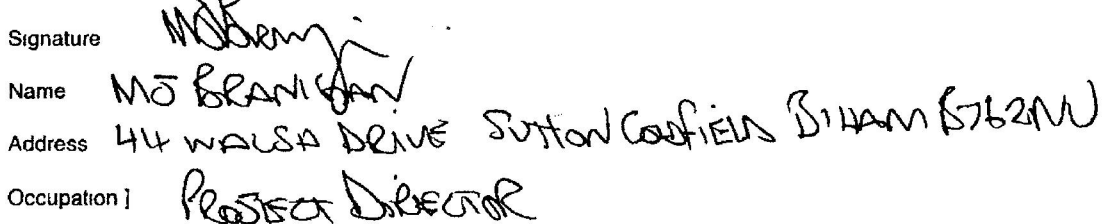 Signature MJBranigan
Name MJ BRANIGAN
Address 44 WALSA DRIVE SUTTON COLDFIELD B'HAM B762NU
Occupation ] PROJECT DIRECTOR